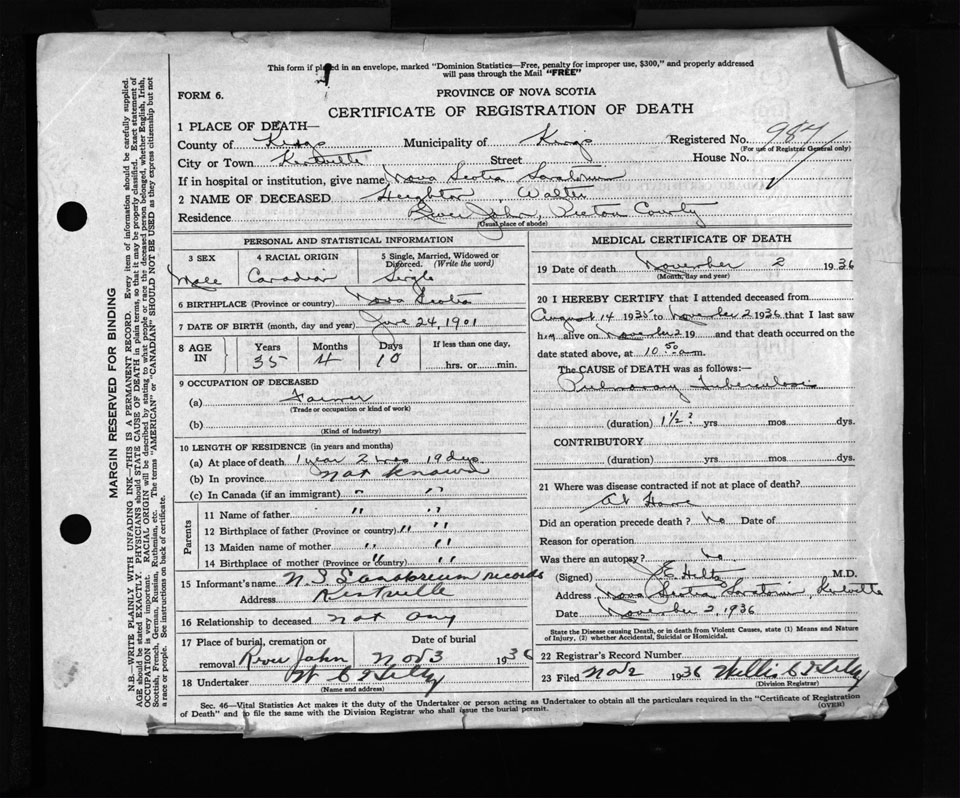 This form if placed in an envelope, marked "Dominion Statistics—Free, penalty for improper use, $300," and properly addressed
will pass through the Mail "FREE"
FORM 6.
PROVINCE OF NOVA SCOTIA
CERTIFICATE OF REGISTRATION OF DEATH
1 PLACE OF DEATH—
County of Kings Municipality of Kings Registered No. 987
(For use of Registrar General only)
City or Town Kentville Street House No.
If in hospital or institution, give name Nova Scotia Sanatorium
2 NAME OF DECEASED Heighton, Walter
Residence River John, Pictou County
(Usual place of abode)
PERSONAL AND STATISTICAL INFORMATION
3 SEX 4 RACIAL ORIGIN 5 Single, Married, Widowed or Divorced. (Write the word)
Male Canadian Single
6 BIRTHPLACE (Province or country) Nova Scotia
7 DATE OF BIRTH (month, day and year) June 24, 1901
8 AGE IN Years Months Days If less than one day,
35 4 10 hrs. or min.
9 OCCUPATION OF DECEASED
(a) Farmer
(Trade or occupation or kind of work)
(b)
(Kind of industry)
10 LENGTH OF RESIDENCE (in years and months)
(a) At place of death 1 year 2 mos 19 dys
(b) In province not known
(c) In Canada (if an immigrant) " "
Parents
11 Name of father " "
12 Birthplace of father (Province or country) " "
13 Maiden name of mother " "
14 Birthplace of mother (Province or country) " "
15 Informant's name N.S Sanatorium records
Address Kentville
16 Relationship to deceased not any
17 Place of burial, cremation or Date of burial
removal River John Nov 3 1936
18 Undertaker W C
(Name and address)
MEDICAL CERTIFICATE OF DEATH
19 Date of death November 2 1936
(Month, day and year)
20 I HEREBY CERTIFY that I attended deceased from
August 14 1935 to November 2 1936 that I last saw
him alive on November 2 19 and that death occurred on the
date stated above, at 10 50 a.m.
The CAUSE of DEATH was as follows:—
Pulmonary Tuberculosis
(duration) 1½? yrs mos dys.
CONTRIBUTORY
(duration) yrs mos dys.
21 Where was disease contracted if not at place of death?
At Home
Did an operation precede death? No Date of
Reason for operation
Was there an autopsy? No
(Signed) J E Hiltz M.D.
Address Nova Scotia Sanatorium, Kentville
Date November 2, 1936
State the Disease causing Death, or in death from Violent Causes, state (1) Means and Nature
of Injury, (2) whether Accidental, Suicidal or Homicidal.
22 Registrar's Record Number
23 Filed Nov 2 1936 Willis C
(Division Registrar)
Sec. 46—Vital Statistics Act makes it the duty of the Undertaker or person acting as Undertaker to obtain all the particulars required in the "Certificate of Registration
of Death" and to file the same with the Division Registrar who shall issue the burial permit.
(OVER)
MARGIN RESERVED FOR BINDING
N.B.—WRITE PLAINLY WITH UNFADING INK—THIS IS A PERMANENT RECORD. Every item of information should be carefully supplied.
AGE should be stated EXACTLY. PHYSICIANS should STATE CAUSE OF DEATH in plain terms, so that it may be properly classified. Exact statement of
OCCUPATION is very important. RACIAL ORIGIN will be described by stating to what people or race the deceased person belonged, whether English, Irish,
Scottish, French, German, Russian, Ruthenian, etc. The terms "AMERICAN" or "CANADIAN" SHOULD NOT BE USED as they express citizenship but not
a race or people. See instructions on back of certificate.